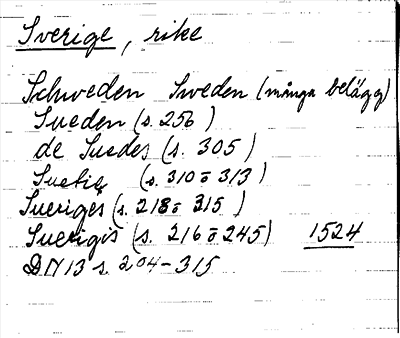 Sverige, rike
Schweden Sweden (många belägg)
Sueden (s. 256)
de Suedes (s. 305)
Suetie (s. 310 o 313)
Sueriges (s. 218 o 315)
Suerigis (s. 216 o 245) 1524
DN 13 s. 204-315